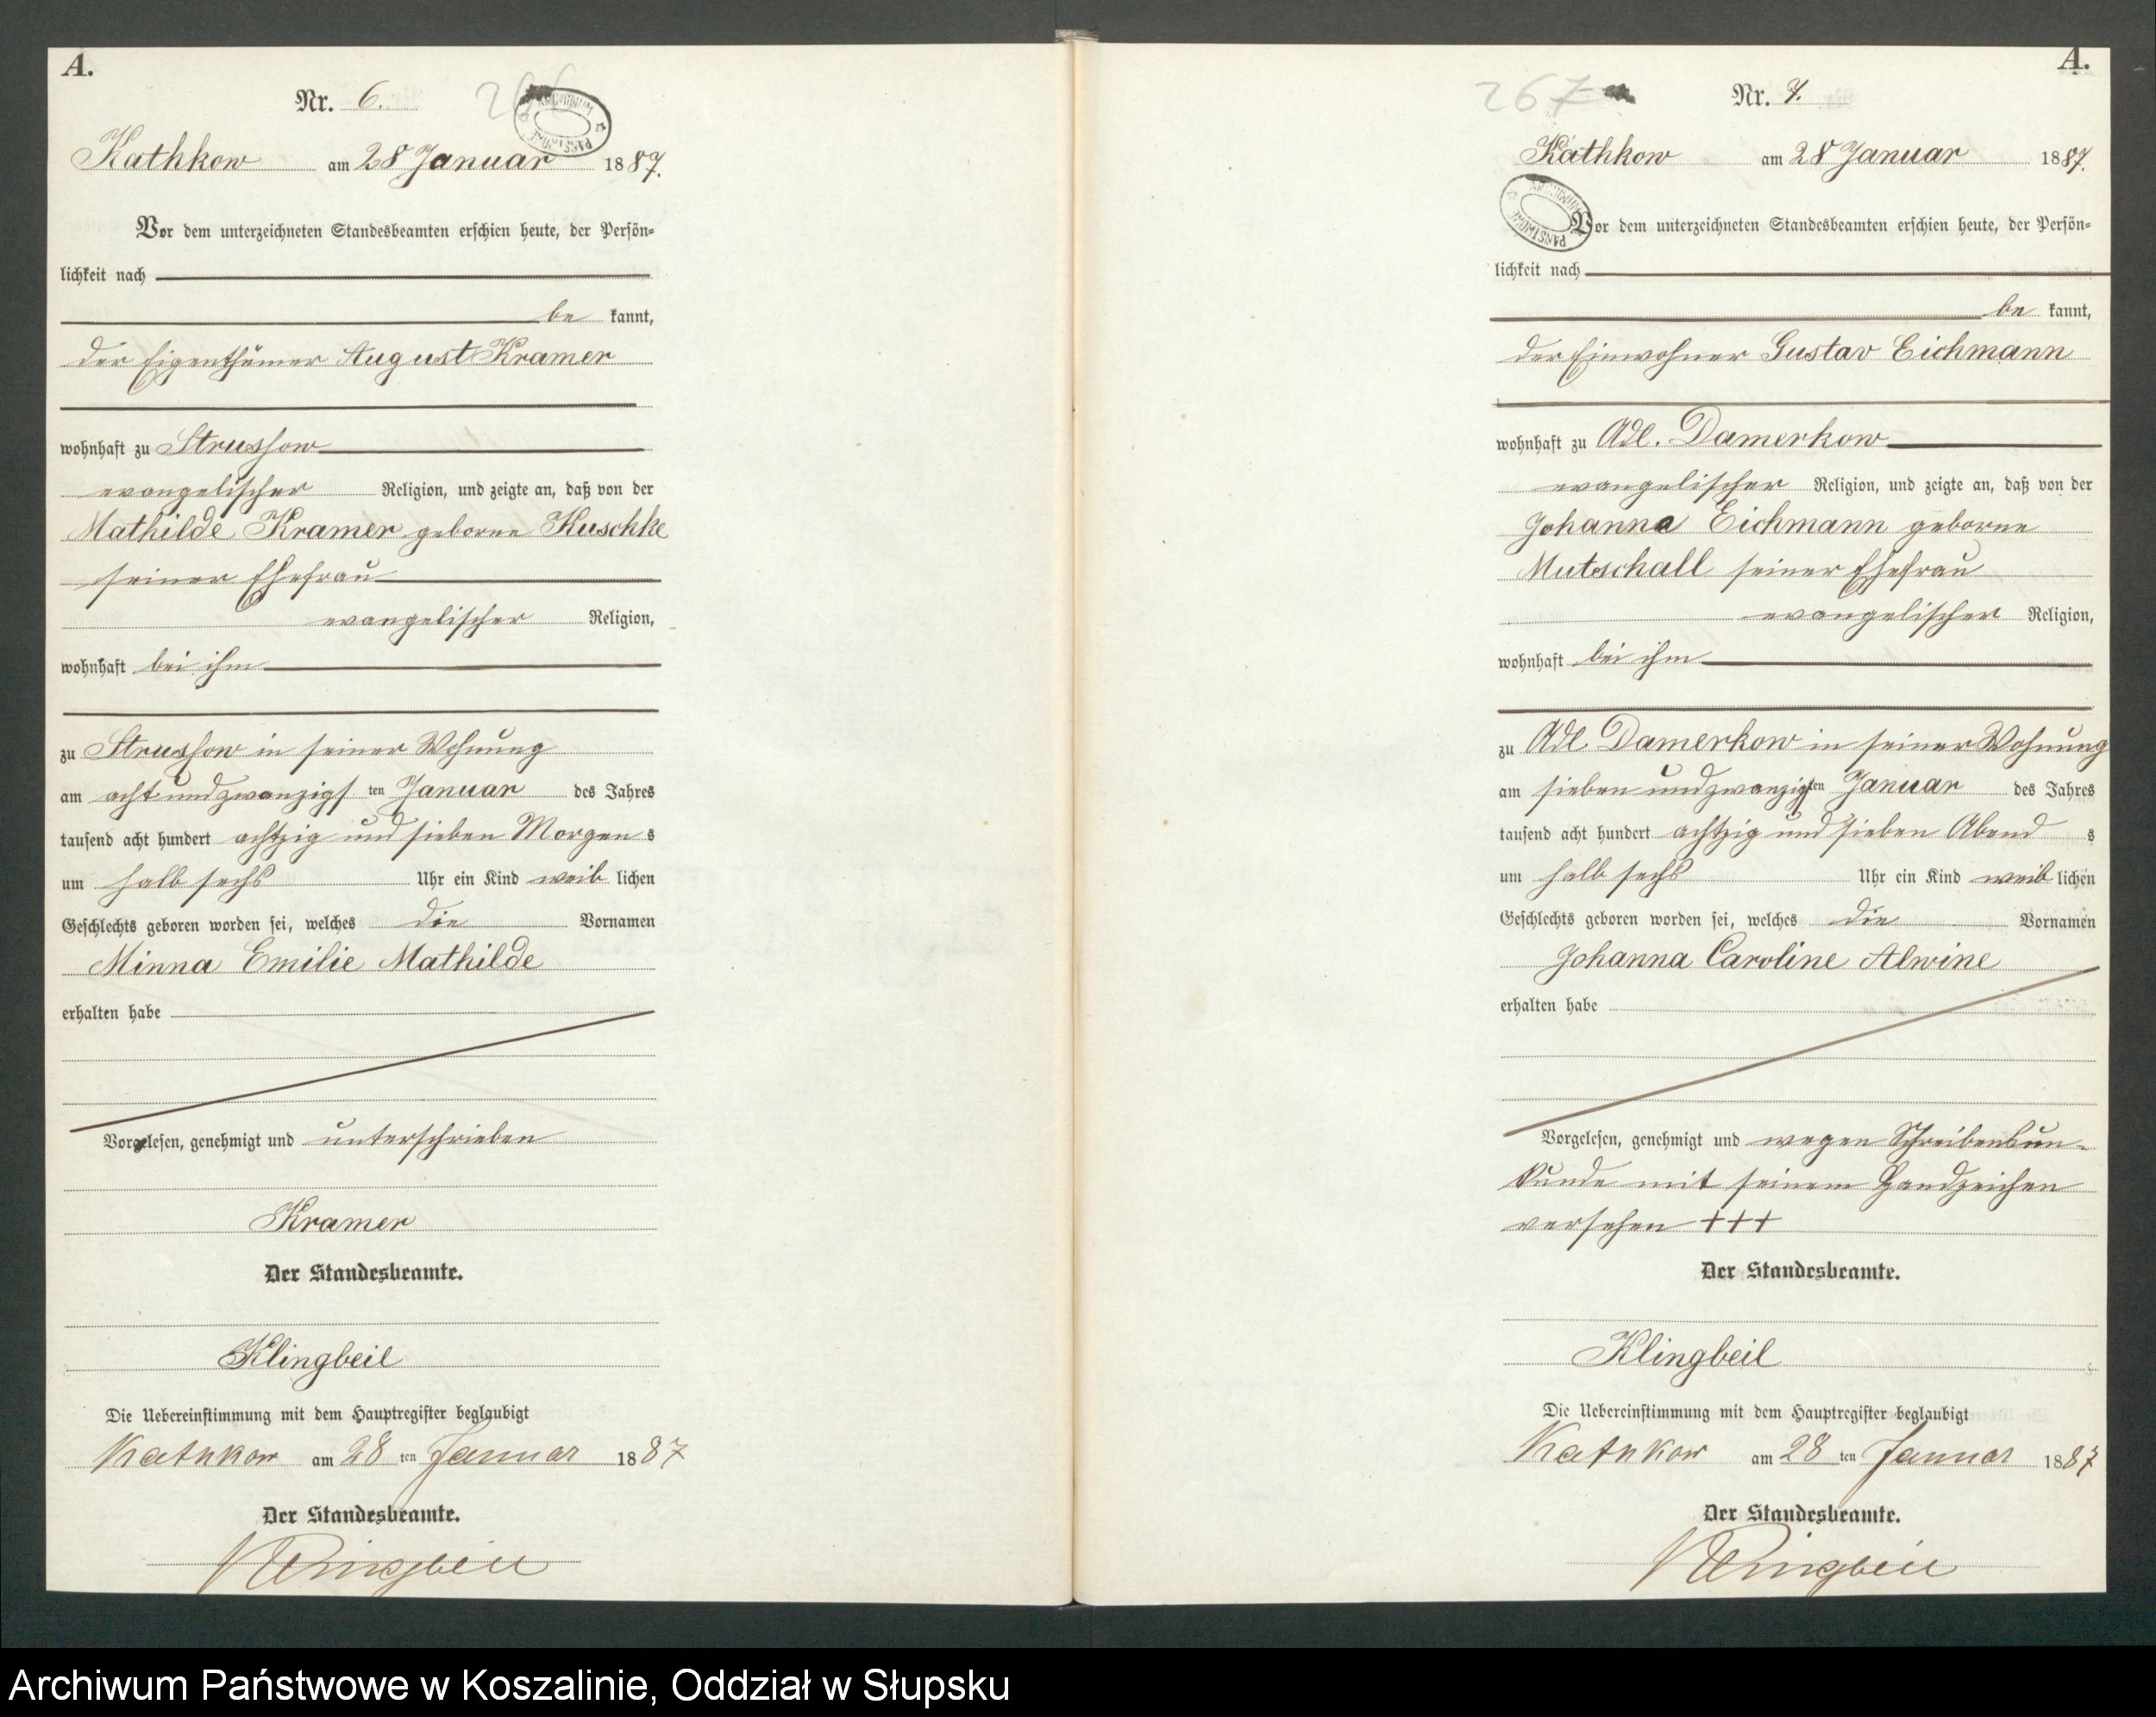 A.
Nr. 6.
Kathkow am 28 Januar 1887.
Vor dem unterzeichneten Standesbeamten erschien heute, der Persön=
lichkeit nach
be kannt,
der Eigenthümer August Kramer
wohnhaft zu Strussow
evangelischer Religion, und zeigte an, daß von der
Mathilde Kramer geborne Kuschke
seiner Ehefrau
evangelischer Religion,
wohnhaft bei ihm
zu Strussow in seiner Wohnung
am acht und zwanzigs ten Januar des Jahres
tausend acht hundert achtzig und sieben Morgen s
um halb sechs Uhr ein Kind weib lichen
Geschlechts geboren worden sei, welches die Vornamen
Minna Emilie Mathilde
erhalten habe
Vorgelesen, genehmigt und unterschrieben
Kramer
Der Standesbeamte.
Klingbeil
Die Uebereinstimmung mit dem Hauptregister beglaubigt
Kathkow am 28 ten Januar 1887
Der Standesbeamte.
Klingbeil
A.
267
Nr. 7.
Kathkow am 28 Januar 1887.
ARCHIWUM PAŃSTWOWE
Vor dem unterzeichneten Standesbeamten erschien heute, der Persön=
lichkeit nach
be kannt,
der Einwohner Gustav Eichmann
wohnhaft zu Adl. Damerkow
evangelischer Religion, und zeigte an, daß von der
Johanna Eichmann geborne
Mutschall seiner Ehefrau
evangelischer Religion,
wohnhaft bei ihm
zu Adl. Damerkow in seiner Wohnung
am sieben und zwanzigsten Januar des Jahres
tausend acht hundert achtzig und sieben Abend s
um halb sechs Uhr ein Kind weib lichen
Geschlechts geboren worden sei, welches die Vornamen
Johanna Caroline Alwine
erhalten habe
Vorgelesen, genehmigt und wegen Schreibensun-
kunde mit seinem Handzeichen
versehen +++
Der Standesbeamte.
Klingbeil
Die Uebereinstimmung mit dem Hauptregister beglaubigt
Kathkow am 28 ten Januar 1887
Der Standesbeamte.
Klingbeil
Archiwum Państwowe w Koszalinie, Oddział w Słupsku